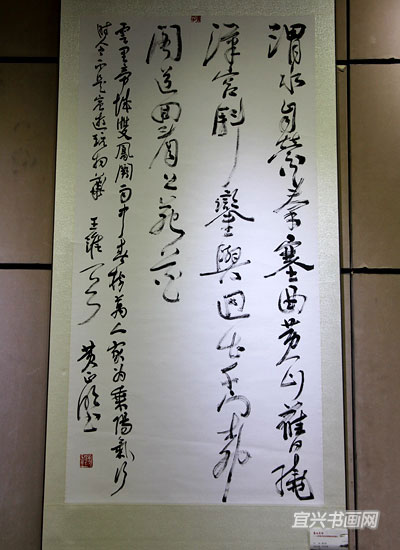 渭水自縈秦塞曲黄山舊繞
漢宫斜鑾輿迥出千門柳
閣道回看上苑花
雲里帝城雙鳳闕雨中春樹萬人家为乘陽氣行
時令不是宸遊玩物華 王維
宜兴书画网